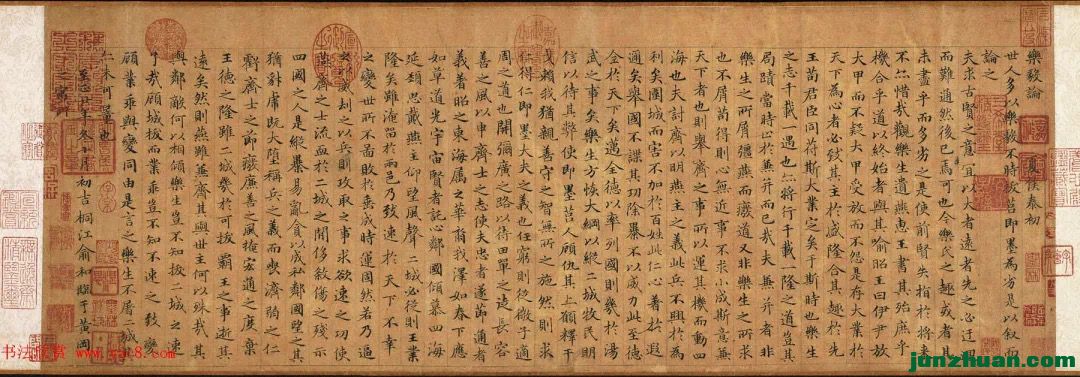 樂毅論 夏侯泰初
世人多以樂毅不時拔莒即墨為劣是以叙而
論之
夫求古賢之意宜以大者遠者先之必迂迴
而難通然後已焉可也今樂氏之趣或者其
未盡乎而多劣之是使前賢失指於將來
不亦惜哉觀樂生遺燕惠王書其殆庶乎
機合乎道以終始者與其喻昭王曰伊尹放
大甲而不疑大甲受放而不怨是存大業於
天下為心者必致其主於盛隆合其趣於先
王苟君臣同符斯大業定矣于斯時也樂生
之志千載一遇也亦將行千載一隆之道豈其
局蹟當時止於兼并而已哉夫兼并者非
樂生之所屑彊燕而廢道又非樂生之所求
也不屑苟得則心無近事不求小成斯意兼
天下者也則舉齊之事所以運其機而動四
海也夫討齊以明燕主之義此兵不興於為
利矣圍城而害不加於百姓此仁心著於遐
邇矣舉國不謀其功除暴不以威力此至德
全於天下矣邁全德以率列國則幾於湯
武之事矣樂生方恢大綱以縱二城牧民明
信以待其弊使即墨莒人顧仇其上願釋干
戈賴我猶親善守之智無所之施然則求
仁得仁即墨大夫之義也任窮則從微子適
周之道也開彌廣之路以待田單之徒長容
善之風以申齊士之志使夫忠者遂節通者
義著昭之東海属之華裔我澤如春下應
如草道光宇宙賢者託心鄰國傾慕四海
延頸思戴燕主仰望風聲二城必從則王業
隆矣雖淹留於兩邑乃致速於天下不幸
之變世所不圖敗於垂成時運固然若乃逼
之以威刼之以兵則攻取之事求欲速之功使
燕齊之士流血於二城之間侈敚傷之殘示
四國之人是縱暴易亂貪以成私鄰國望之其
猶豺虎既大墮稱兵之義而喪濟弱之仁
虧齊士之節廢廉善之風掩宏通之度棄
王德之隆雖二城幾於可拔霸王之事逝其
遠矣然則燕雖兼齊其與世主何以殊哉其
與鄰敵何以相傾樂生豈不知拔二城之速
了哉顧城拔而業乖豈不知不速之致變
顧業乖與變同由是言之樂生不屠二城
未可量也
至正年冬十月初吉桐江俞和臨于黄岡
之寓所
书法欣赏 www.yac8.com
junzhuan.com